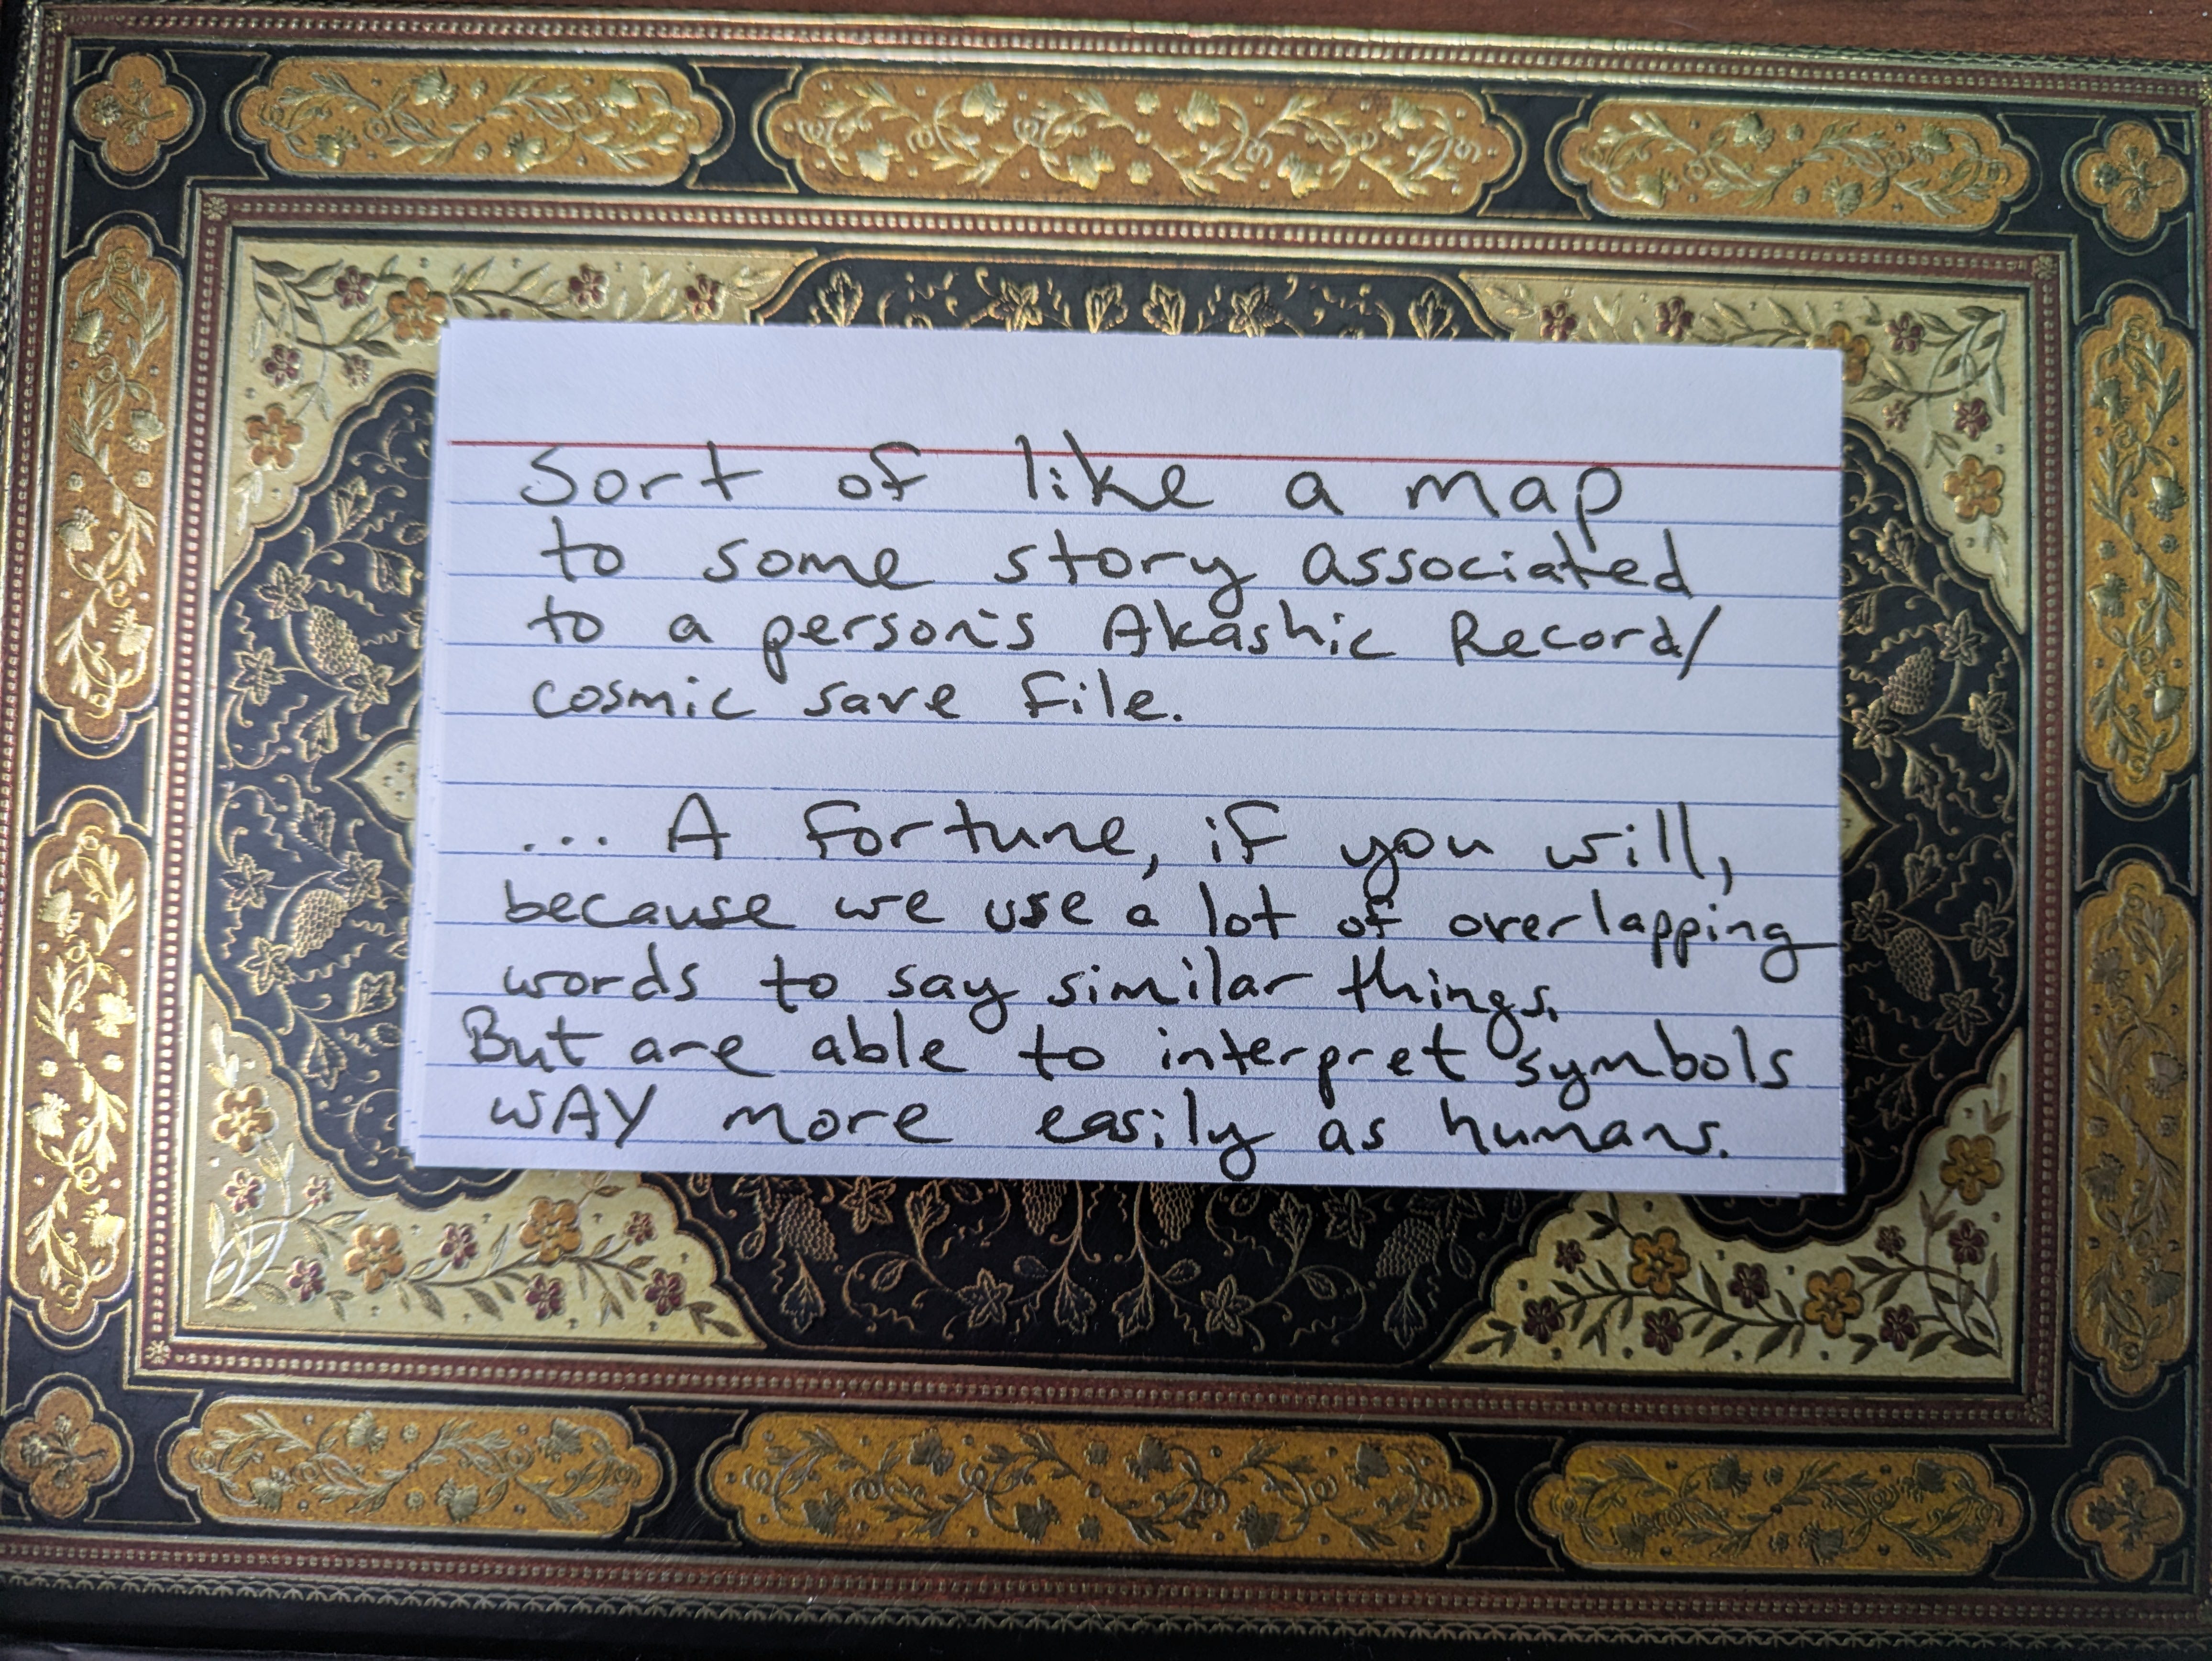 Sort of like a map
to some story associated
to a person's Akashic Record/
cosmic save file.
... A fortune, if you will,
because we use a lot of overlapping
words to say similar things.
But are able to interpret symbols
WAY more easily as humans.